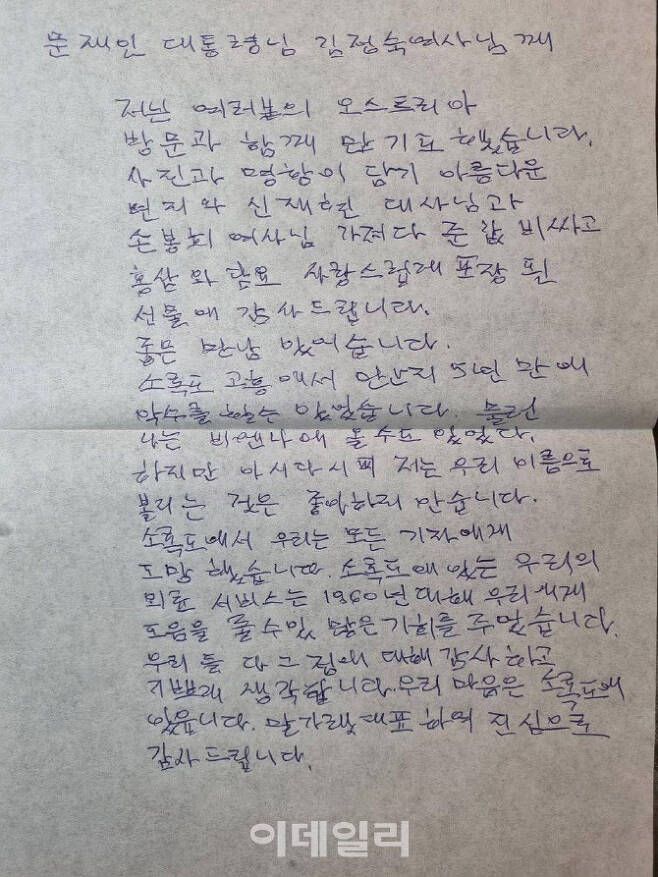 문재인 대통령님 김정숙여사님께
저는 여러분의 오스트리아
방문과 함께 만 기도 했습니다.
사진과 명함이 담기 아름다운
편지와 신재현 대사님과
손봉희 여사님 가져다 준 값 비싸고
홍삼와 담요 사랑스럽게 포장 된
선물에 감사드립니다.
좋은 만남 있어습니다.
소록도 고흥에서 안난지 5년 만에
악수를 할수 있었습니다. 물런
나는 비엔나에 올수도 있었다.
하지만 아시다시피 저는 우리 이름으로
불리는 것은 좋아하리 만습니다.
소록도에서 우리는 모든 기자에게
도망 했습니다. 소록도에 있는 우리의
의료 서비스는 1960년대해 우리에게
도음을 줄수있 많은 기회를 주었습니다.
우리 둘 다 그 점에 대해 감사하고
기쁘게 생각합니다. 우리 마음은 소록도에
있읍니다. 말가렛대표 하여 진심으로
감사드립니다.
이데일리